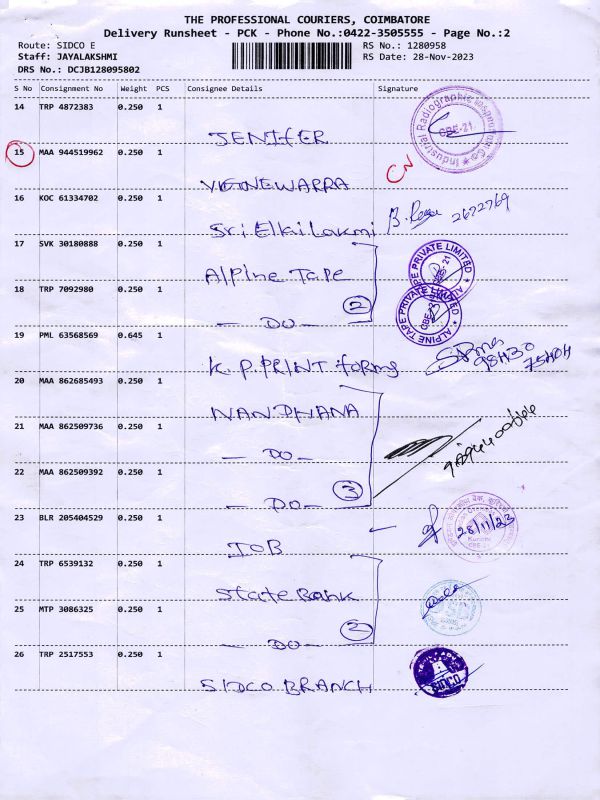 THE PROFESSIONAL COURIERS, COIMBATORE
Delivery Runsheet - PCK - Phone No.:0422-3505555 - Page No.:2
Route: SIDCO E
RS No.: 1280958
Staff: JAYALAKSHMI
RS Date: 28-Nov-2023
DRS No.: DCJB128095802
S No Consignment No Weight PCS Consignee Details Signature
14 TRP 4872383 0.250 1
JENIFER
Industrial Radiographic Inspection Co
CBE-21
15 MAA 944519962 0.250 1
CN
VIGNEWARRA
16 KOC 61334702 0.250 1
Sri Elkai Laxmi
2672769
17 SVK 30180888 0.250 1
Alpine Tape
ALPINE TAPE PRIVATE LIMITED
CBE-21
18 TRP 7092980 0.250 1
2
- DO -
ALPINE TAPE PRIVATE LIMITED
CBE-21
19 PML 63568569 0.645 1
K. P. PRINT forms
20 MAA 862685493 0.250 1
NANDHANA
21 MAA 862509736 0.250 1
- DO -
22 MAA 862509392 0.250 1
3
- DO -
23 BLR 205404529 0.250 1
IOB
28/11/23
24 TRP 6539132 0.250 1
State Bank
25 MTP 3086325 0.250 1
2
- DO -
26 TRP 2517553 0.250 1
SIDCO BRANCH
SIDCO